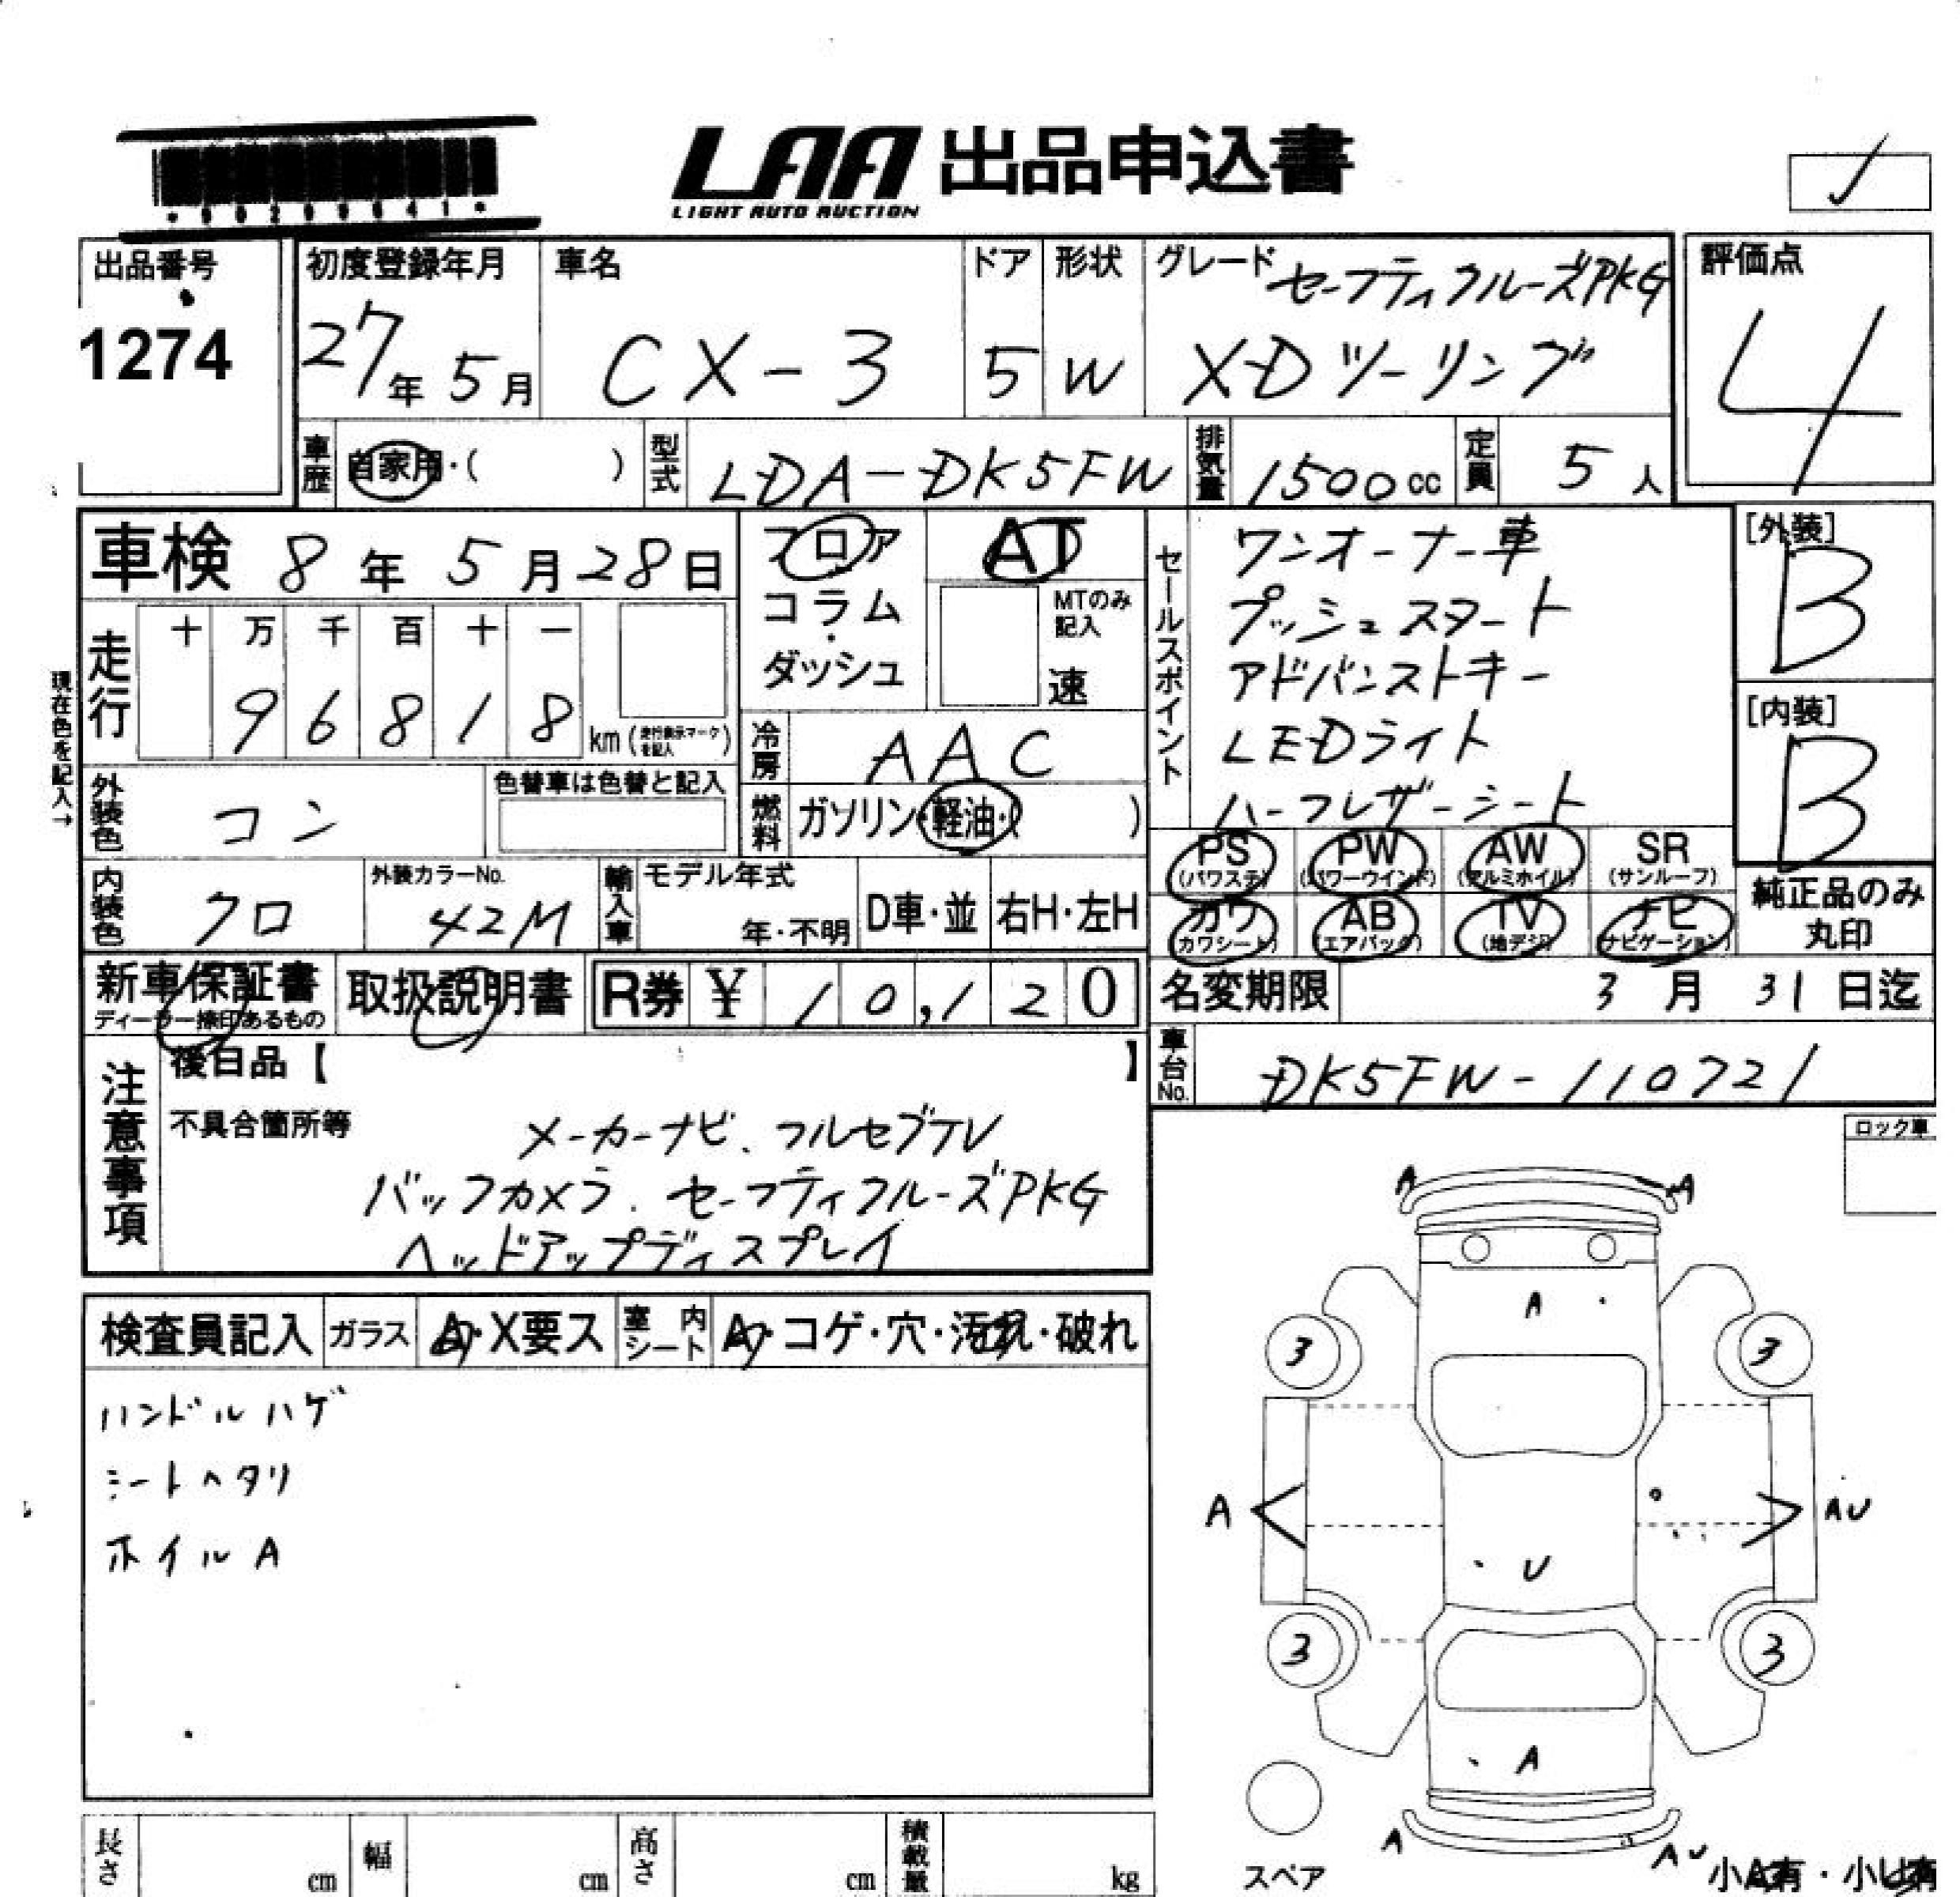 *90209641*
LAA 出品申込書
LIGHT AUTO AUCTION
出品番号
1274
初度登録年月
27年 5月
車名
CX-3
ドア
5
形状
W
グレード セーフティクルーズPKG
XDツーリング
評価点
4
車歴 自家用・( )
型式 LDA-DK5FW
排気量 1500cc
定員 5人
車検 8年 5月 28日
フロア
コラム
・
ダッシュ
AT
MTのみ
記入
速
走行
十 万 千 百 十 一
9 6 8 1 8 km (走行表示マークを記入)
現在色を記入→
冷房 AAC
燃料 ガソリン・軽油・( )
外装色 コン
色替車は色替と記入
内装色 クロ
外装カラーNo.
42M
輸入車 モデル年式
年・不明
D車・並
右H・左H
セールスポイント
ワンオーナー車
プッシュスタート
アドバンストキー
LEDライト
ハーフレザーシート
[外装]
B
[内装]
B
PS (パワステ)
PW (パワーウインド)
AW (アルミホイル)
SR (サンルーフ)
カワ (カワシート)
AB (エアバッグ)
TV (地デジ)
ナビ (ナビゲーション)
純正品のみ
丸印
新車保証書
ディーラー捺印あるもの
取扱説明書
R券 ¥ 10,120
名変期限 3月 31日迄
車台No. DK5FW-110721
注意事項
後日品【 】
不具合箇所等
メーカーナビ、フルセグTV
バックカメラ、セーフティクルーズPKG
ヘッドアップディスプレイ
ロック車
検査員記入
ガラス A・X要ス
室内シート A・コゲ・穴・汚れ・破れ
ハンドルハゲ
シートヘタリ
ホイルA
A A
A
3 3
A AU
U
3 3
A
A AU
スペア
小A有・小U有
長さ cm
幅 cm
高さ cm
積載量 kg